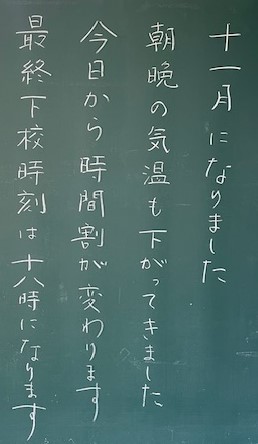 十一月になりました
朝晩の気温も下がってきました
今日から時間割が変わります
最終下校時刻は十八時になります